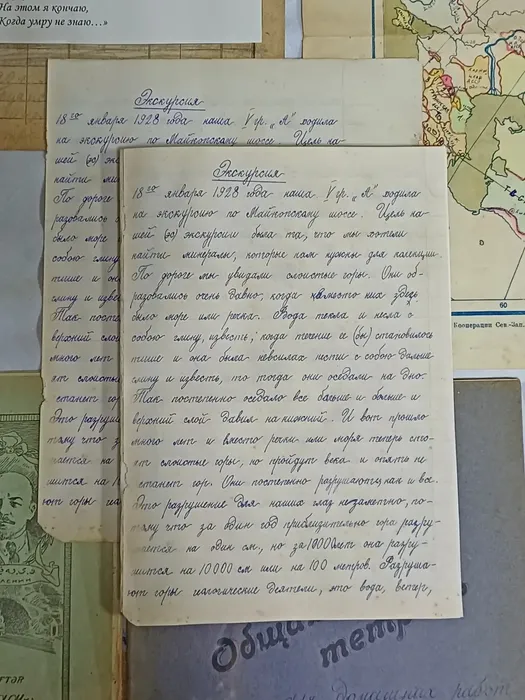 На этом я кончаю,
Когда умру не знаю…»
Экскурсия
18го января 1928 года наша V гр. „А" ходила
на экскурсию по Майкопскому шоссе. Цель на-
шей (эо) экс
найти мин
По дороге
разовались
было море
собою глину
тише и она
глину и извес
Так посте
верхний сло
много лет
ят слоистые
станет го
Это разруш
тому что з
шается на
шится на 10
ют горы геа
Экскурсия
18го января 1928 года наша V гр. „А" ходила
на экскурсию по Майкопскому шоссе. Цель на-
шей (эо) экскурсии была та, что мы хотели
найти минералы, которые нам нужны для калекции.
По дороге мы увидали слоистые горы. Они об-
разовались очень давно, когда вместо них здесь
было море или речка. Вода текла и несла с
собою глину, известь, когда течение ее (бы) становилось
тише и она была невсилах нести с собою дальше
глину и известь, то тогда они оседали на дно.
Так постепенно оседало все больше и больше и
верхний слой давил на нижний. И вот прошло
много лет и вместо речки или моря теперь сто-
ят слоистые горы, но пройдут века и опять не
станет гор. Они постепенно разрушаются, как и все.
Это разрушение для наших глаз незаметно, по-
тому что за один год приблизительно гора разру-
шается на один см, но за 10000 лет она разру-
шится на 10 000 см или на 100 метров. Разруша-
ют горы геалогические деятели, это вода, ветер,
Общая
тетр
для домашних работ
60
Кооперации Сев.-Зап.